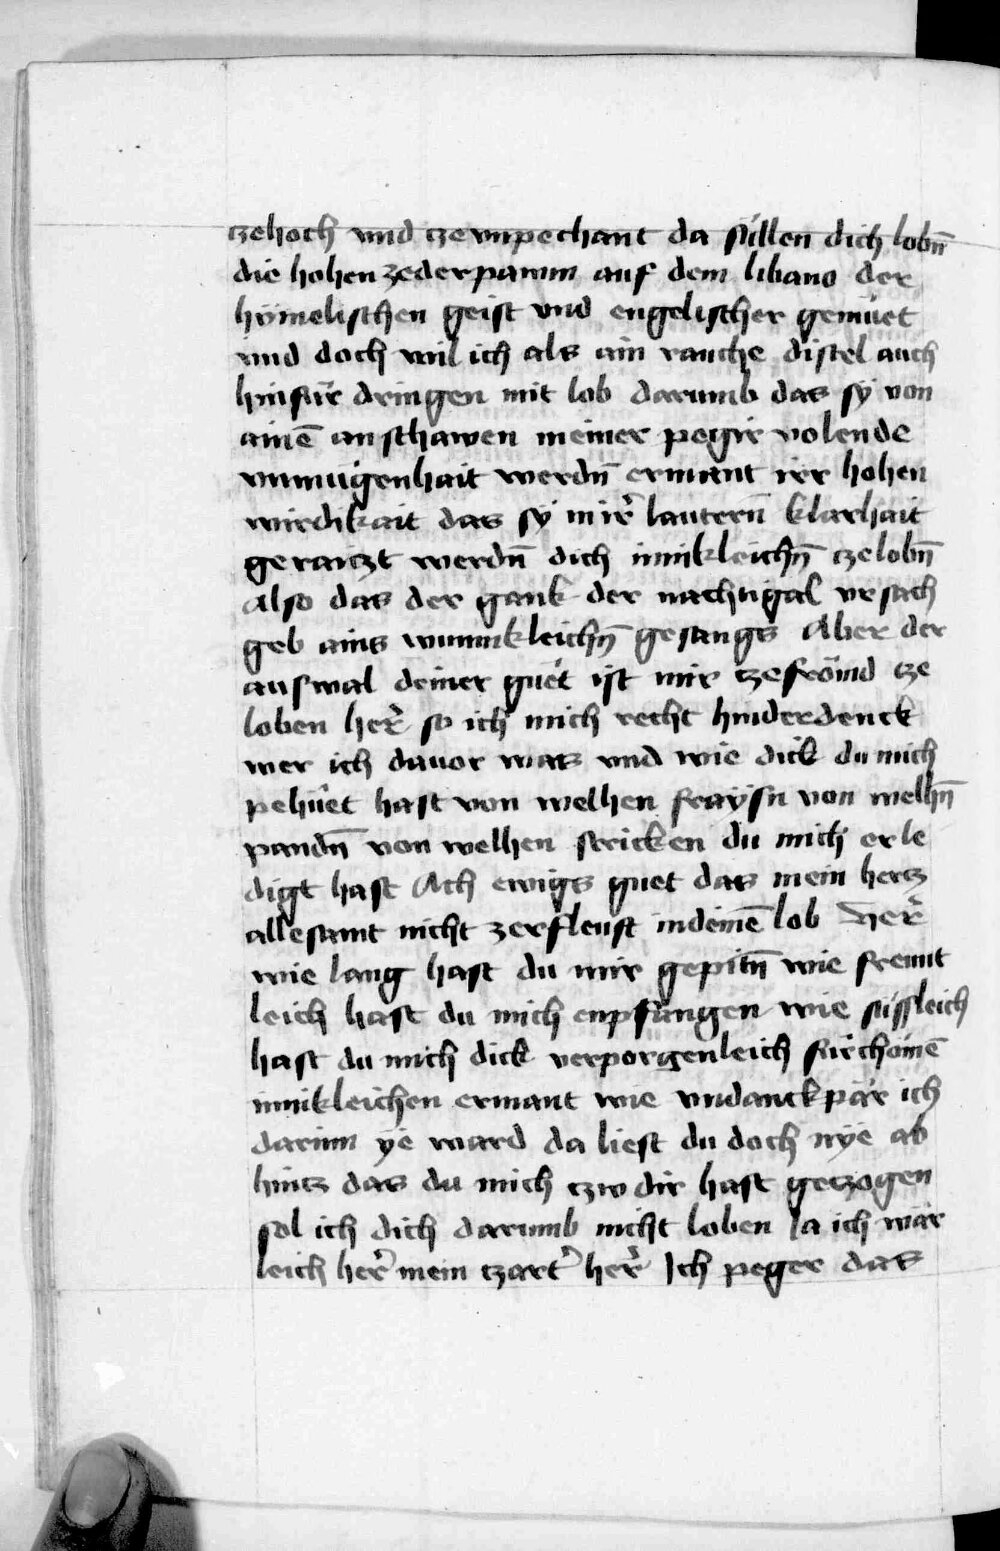 tzehoch vnd tze vnpechant da süllen dich lobn̄
die hohen zederpawm auf dem libano der
hymelischen geist vnd engelischer gemüet
vnd doch wil ich als ain rauche distel auch
hinfür dringen mit lob darumb das sy von
ainē anschawen meiner pegir volende
vnmügenhait werdn̄ ermant irr hohen
wirdikait das sy in ir̄ lautern̄ klarhait
geraitzt werdn̄ dich innikleichn̄ tzelobn̄
Also das der gauk der nachtigal vrsach
geb ains wunnikleichn̄ gesangs Aber der
auswal deiner güet ist mir tzefrömd tze
loben her̄ so ich mich recht hinderdenck
wer ich dauor was vnd wie dick du mich
pehüet hast von welhen fraysn von welhn̄
pandn̄ von welhen stricken du mich erle
digt hast Ach ewigs guet das mein hertz
allesamt nicht zerfleust in deinē lob her̄
wie lang hast du mir gepitn̄ wie freunt
leich hast du mich enpfangen wie süssleich
hast du mich dick verporgenleich fürchömē
innikleichen ermant wie vndanckpär ich
darinn ye ward da liest du doch nye ab
hintz das du mich tzw dir hast getzogen
sol ich dich darumb nicht loben Ja ich wär
leich her̄ mein tzart' her̄ Ich peger das